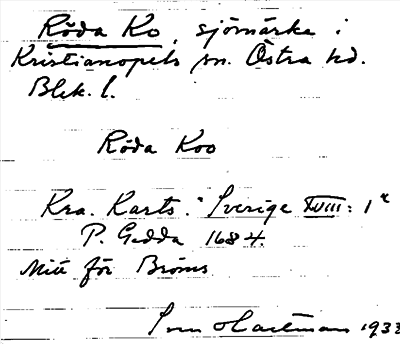 Röda Ko, sjömärke i
Kristianopels sn. Östra hd.
Blek. l.
Röda Koo
Kra. Karts. Sverige XVIII: 1
P. Gedda 1684.
Mitt för Bröms
Sven Hartman 1933